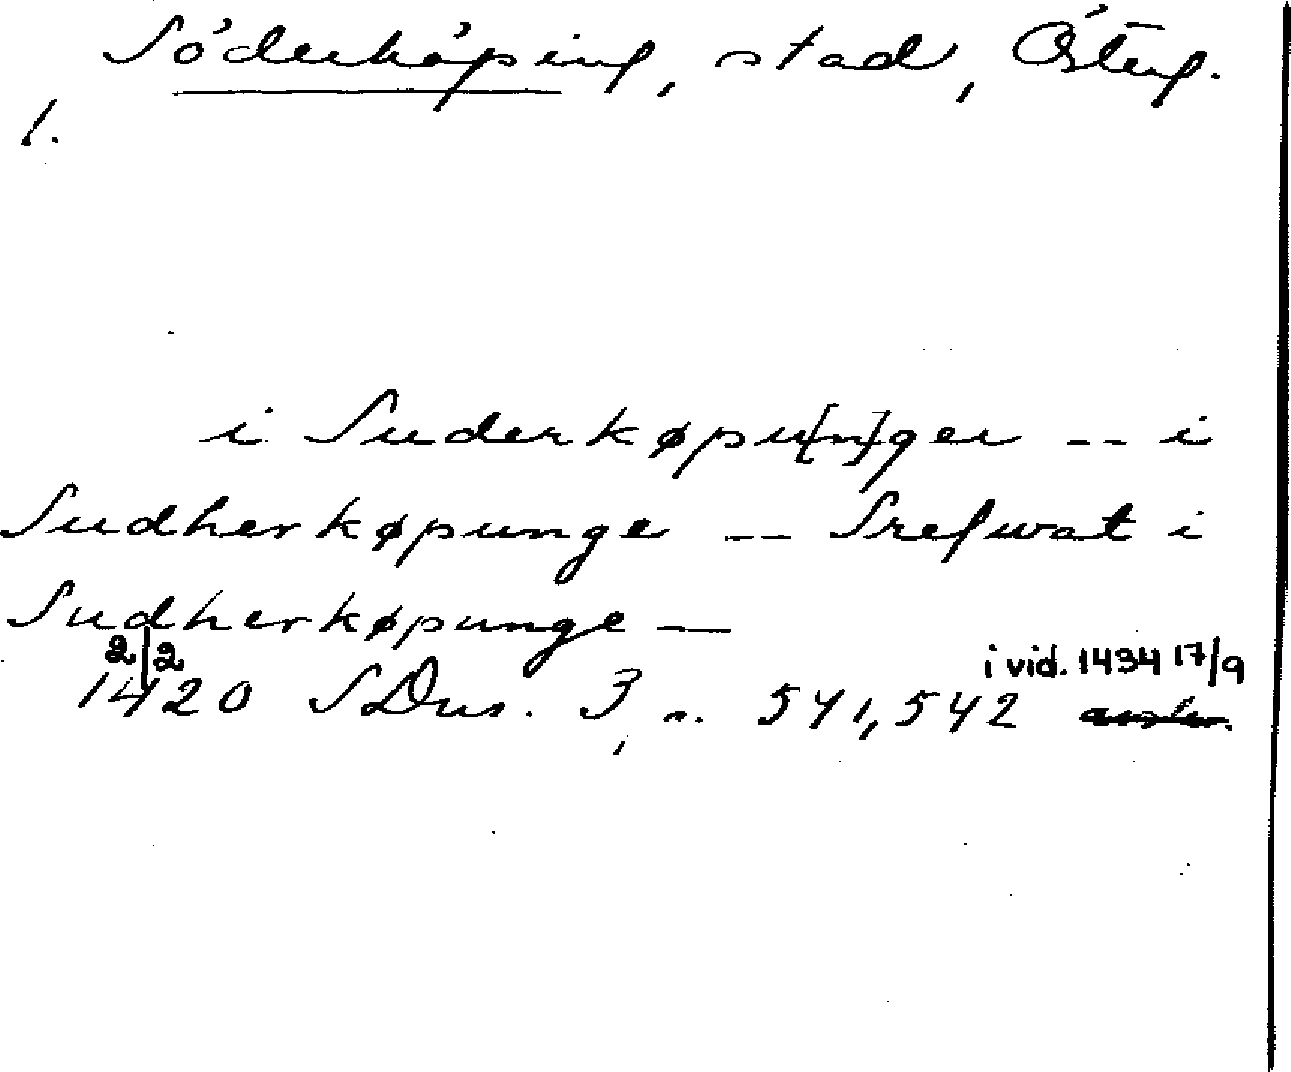 Söderköping, stad, Österg.
1.
i Suderkøpu[n]ger -- i
Sudherkøpunge -- Srefwat i
Sudherkøpunge —
2/2 i vid. 1434 17/9
1420 SDns. 3, s. 541, 542